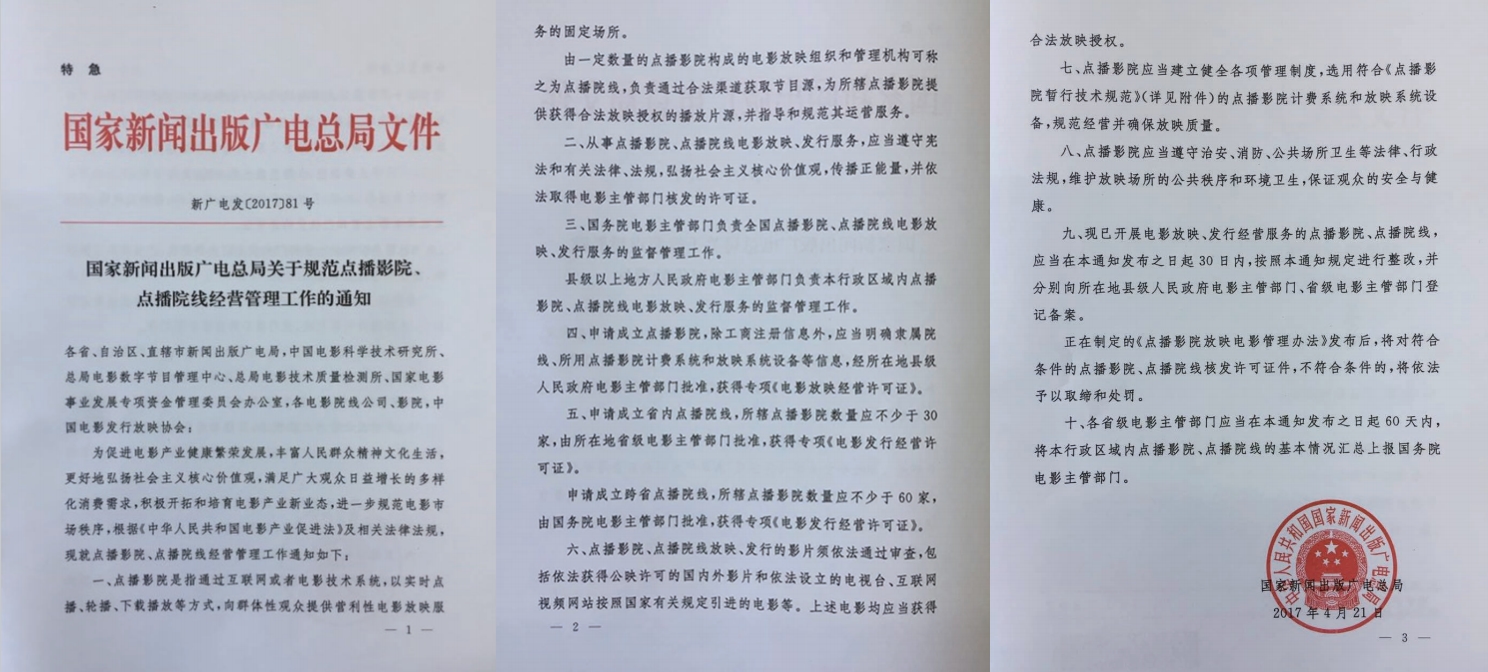 特 急
国家新闻出版广电总局文件
新广电发〔2017〕81 号
国家新闻出版广电总局关于规范点播影院、
点播院线经营管理工作的通知
各省、自治区、直辖市新闻出版广电局,中国电影科学技术研究所、
总局电影数字节目管理中心、总局电影技术质量检测所、国家电影
事业发展专项资金管理委员会办公室,各电影院线公司、影院,中
国电影发行放映协会:
为促进电影产业健康繁荣发展,丰富人民群众精神文化生活,
更好地弘扬社会主义核心价值观,满足广大观众日益增长的多样
化消费需求,积极开拓和培育电影产业新业态,进一步规范电影市
场秩序,根据《中华人民共和国电影产业促进法》及相关法律法规,
现就点播影院、点播院线经营管理工作通知如下:
一、点播影院是指通过互联网或者电影技术系统,以实时点
播、轮播、下载播放等方式,向群体性观众提供营利性电影放映服
— 1 —
务的固定场所。
由一定数量的点播影院构成的电影放映组织和管理机构可称
之为点播院线,负责通过合法渠道获取节目源,为所辖点播影院提
供获得合法放映授权的播放片源,并指导和规范其运营服务。
二、从事点播影院、点播院线电影放映、发行服务,应当遵守宪
法和有关法律、法规,弘扬社会主义核心价值观,传播正能量,并依
法取得电影主管部门核发的许可证。
三、国务院电影主管部门负责全国点播影院、点播院线电影放
映、发行服务的监督管理工作。
县级以上地方人民政府电影主管部门负责本行政区域内点播
影院、点播院线电影放映、发行服务的监督管理工作。
四、申请成立点播影院,除工商注册信息外,应当明确隶属院
线、所用点播影院计费系统和放映系统设备等信息,经所在地县级
人民政府电影主管部门批准,获得专项《电影放映经营许可证》。
五、申请成立省内点播院线,所辖点播影院数量应不少于 30
家,由所在地省级电影主管部门批准,获得专项《电影发行经营许
可证》。
申请成立跨省点播院线,所辖点播影院数量应不少于 60 家,
由国务院电影主管部门批准,获得专项《电影发行经营许可证》。
六、点播影院、点播院线放映、发行的影片须依法通过审查,包
括依法获得公映许可的国内外影片和依法设立的电视台、互联网
视频网站按照国家有关规定引进的电影等。上述电影均应当获得
— 2 —
合法放映授权。
七、点播影院应当建立健全各项管理制度,选用符合《点播影
院暂行技术规范》(详见附件)的点播影院计费系统和放映系统设
备,规范经营并确保放映质量。
八、点播影院应当遵守治安、消防、公共场所卫生等法律、行政
法规,维护放映场所的公共秩序和环境卫生,保证观众的安全与健
康。
九、现已开展电影放映、发行经营服务的点播影院、点播院线,
应当在本通知发布之日起 30 日内,按照本通知规定进行整改,并
分别向所在地县级人民政府电影主管部门、省级电影主管部门登
记备案。
正在制定的《点播影院放映电影管理办法》发布后,将对符合
条件的点播影院、点播院线核发许可证件,不符合条件的,将依法
予以取缔和处罚。
十、各省级电影主管部门应当在本通知发布之日起 60 天内,
将本行政区域内点播影院、点播院线的基本情况汇总上报国务院
电影主管部门。
中华人民共和国国家新闻出版广电总局
国家新闻出版广电总局
2017 年 4 月 21 日
— 3 —